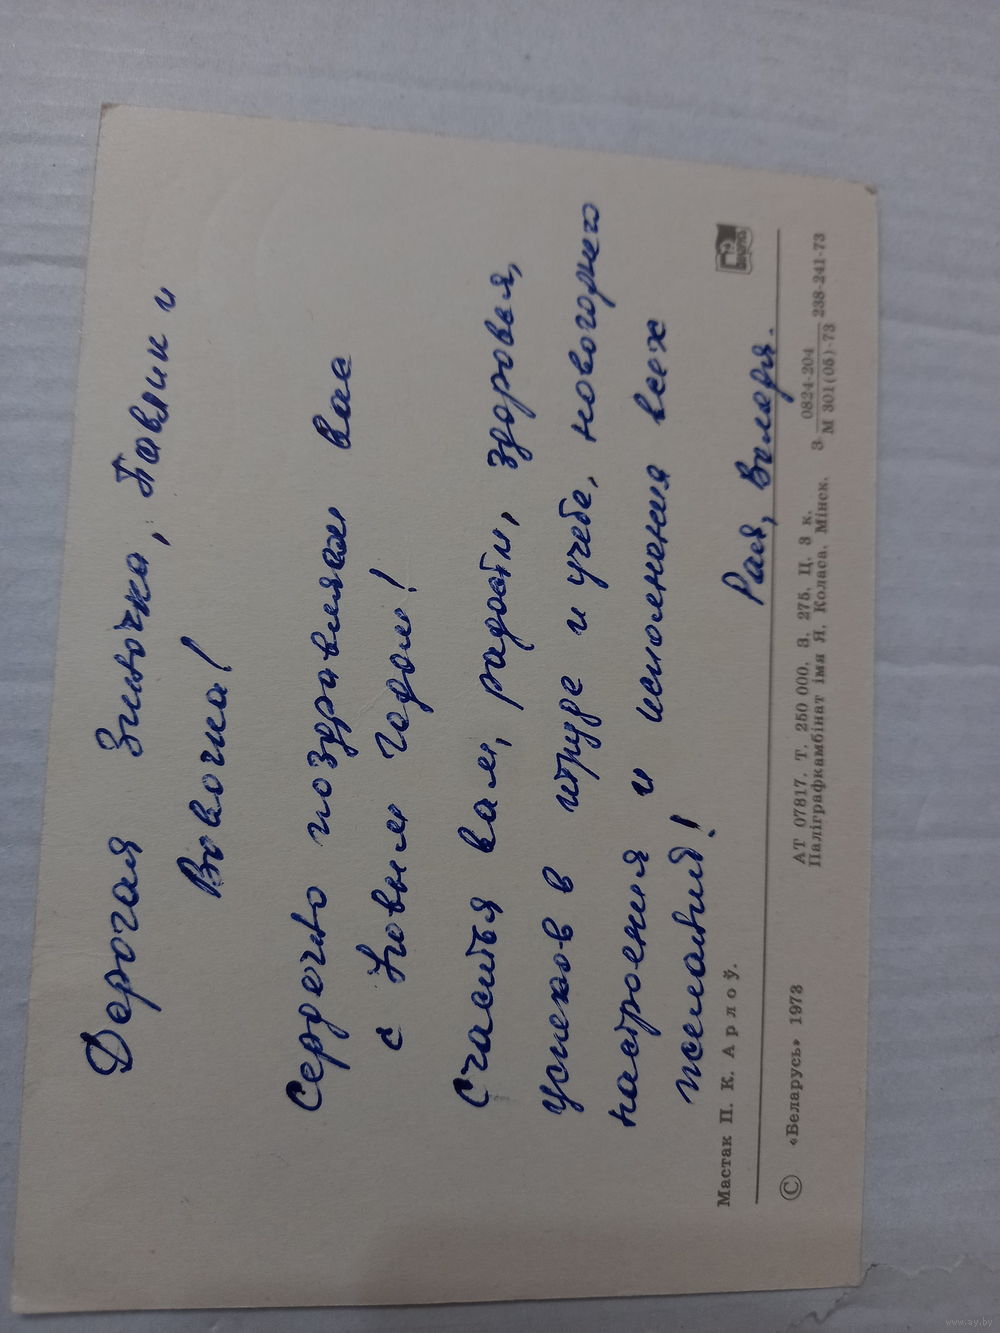 Дорогая Зиночка, Павлик и
Вовочка!
Сердечно поздравляем вас
с Новым годом!
Счастья вам, радости, здоровья,
успехов в труде и учебе, новогоднего
настроения и исполнения всех
желаний!
Рая, Володя.
Мастак П. К. Арлоў.
© «Беларусь» 1973
АТ 07817. Т. 250 000. З. 275. Ц. 3 к.
Паліграфкамбінат імя Я. Коласа. Мінск.
3 0824-204 238-241-73
М 301(05)-73
www.ay.by